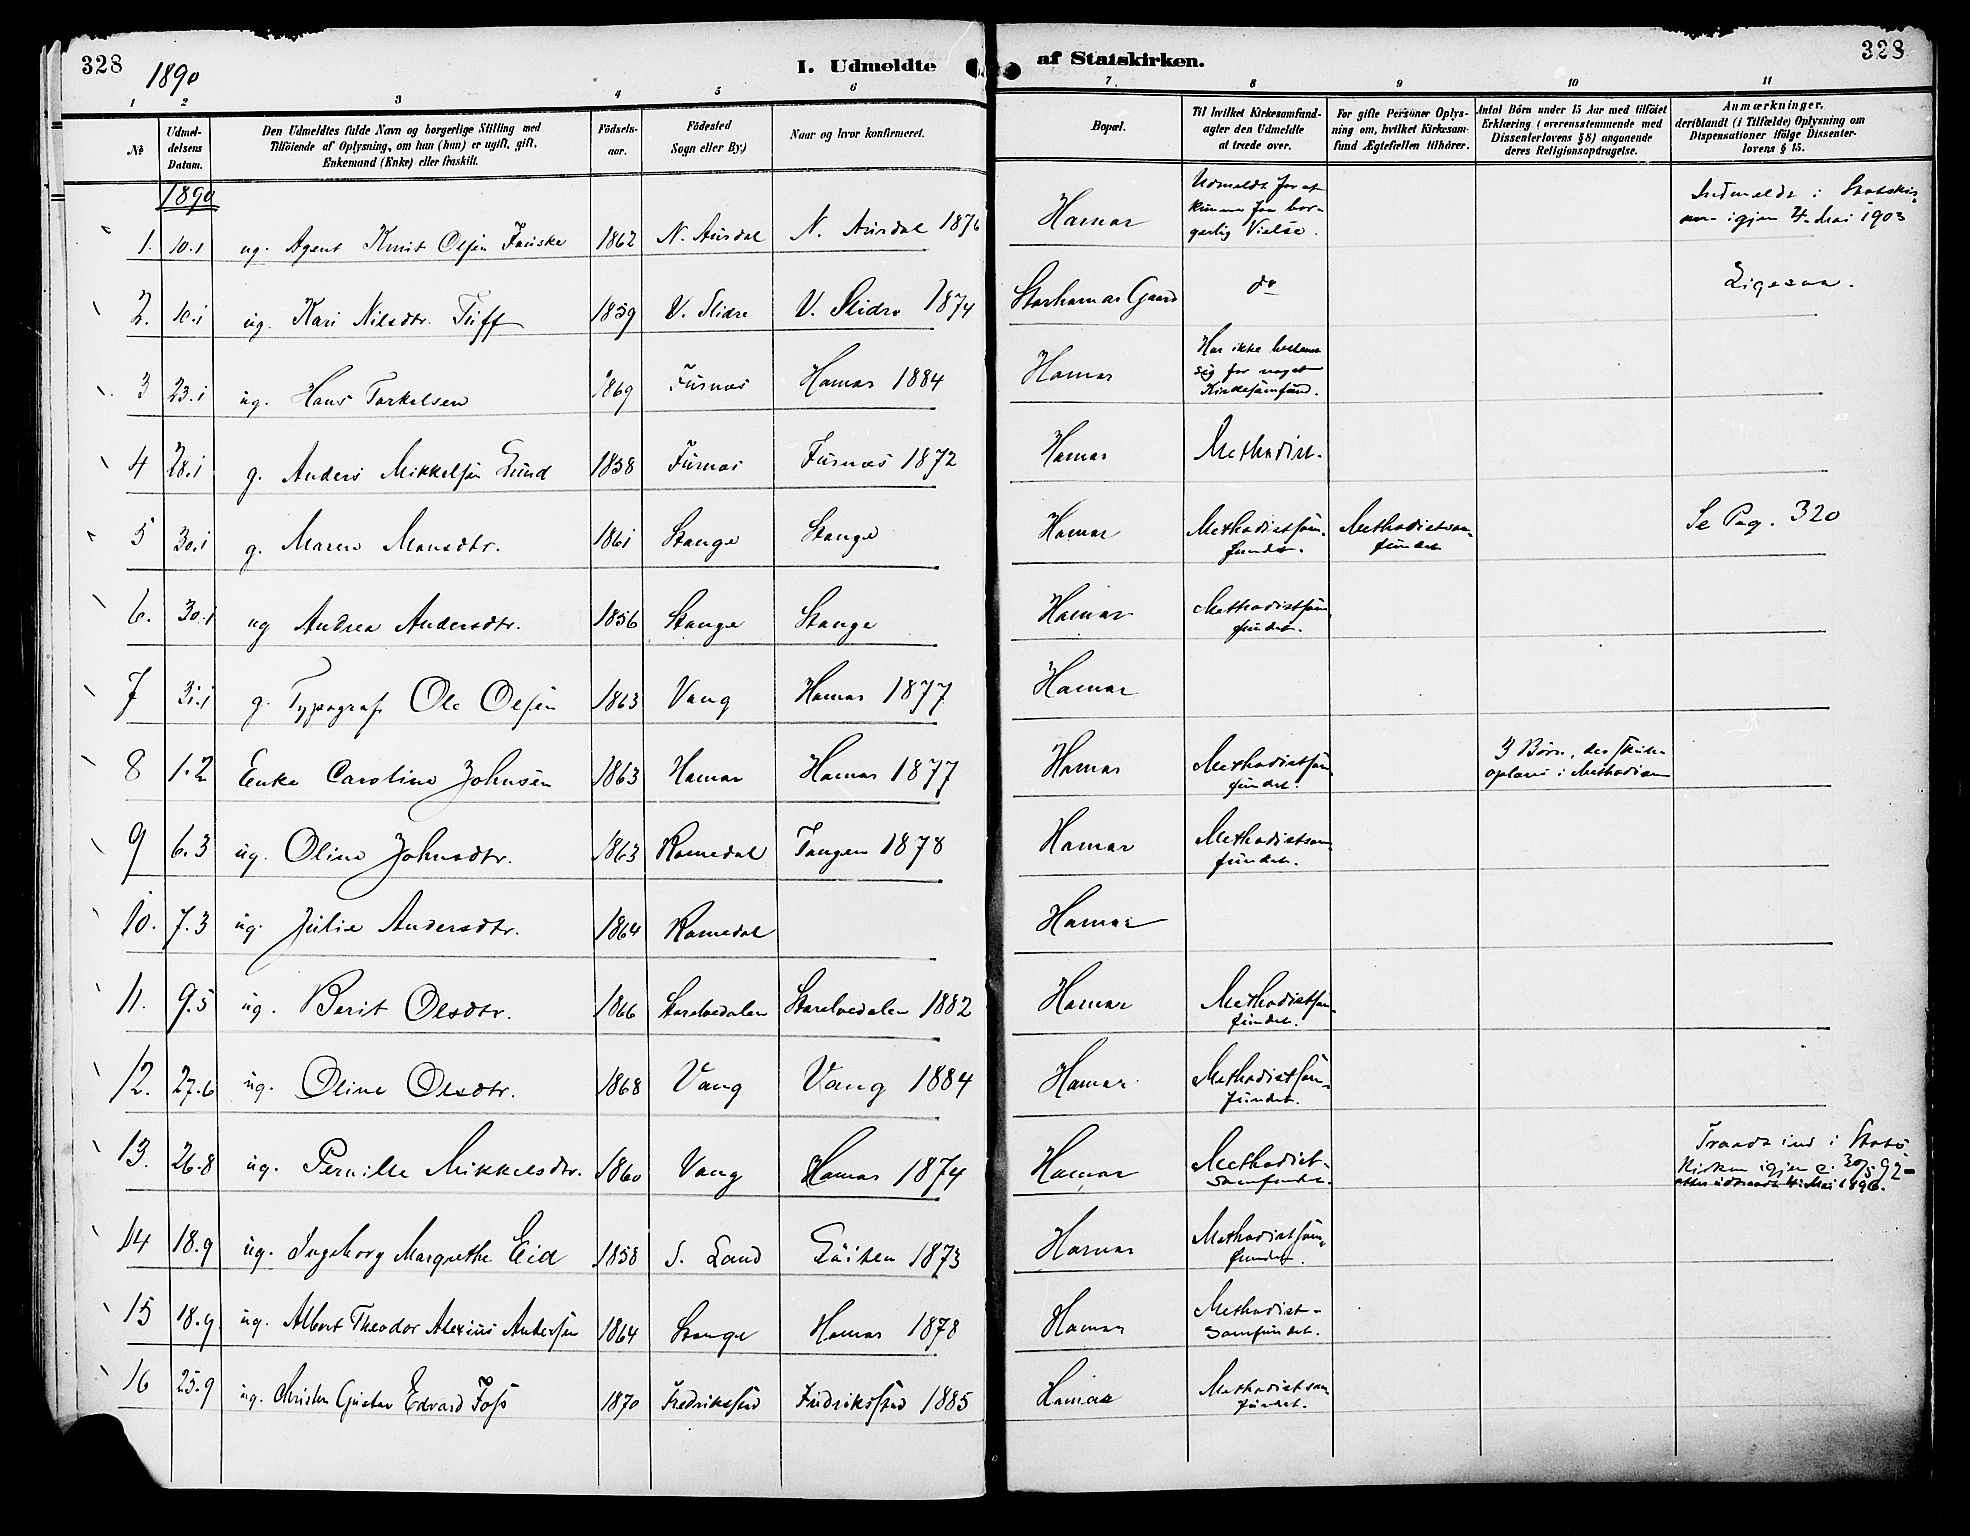 328
1890
I. Udmeldte af Statskirken.
328
1 2 3 4 5 6 7 8 9 10 11
№
Udmel-
delsens
Datum.
Den Udmeldtes fulde Navn og borgerlige Stilling med
Tilføiende af Oplysning, om han (hun) er ugift, gift,
Enkemand (Enke) eller fraskilt.
Fødsels-
aar.
Fødested
Sogn eller By.)
Naar og hvor konfirmeret.
Bopæl.
Til hvilket Kirkesamfund-
agter den Udmeldte
at træde over.
For gifte Personer Oplys-
ning om, hvilket Kirkesam-
fund Ægtefællen tilhører.
Antal Børn under 15 Aar med tilføiet
Erklæring (overensstemmende med
Dissenterlovens § 8) angaaende
deres Religionsopdragelse.
Anmærkninger,
deriblandt (i Tilfælde) Oplysning om
Dispensationer ifølge Dissenter-
lovens § 15.
1890
1. 10.1 ug. Agent Knut Olsen Fauske 1862 N. Aurdal N. Aurdal 1876 Hamar
Udmeldt for at
kunne faa bor-
gerlig Vielse.
Indmeldt i Statskir-
ken igjen 4. Mai 1903
2. 10.1 ug. Kari Nilsdtr. Tuff 1859 V. Slidre V. Slidre 1874 Storhamar Gaard do Ligesaa.
3 23.1 ug. Hans Torkelsen 1869 Furnæs Hamar 1884 Hamar
Har ikke bestemt
sig for noget
Kirkesamfund.
4 28.1 g. Anders Mikkelsen Lund 1858 Furnæs Furnæs 1872 Hamar Methodist.
5 30.1 g. Maren Monsdtr. 1861 Stange Stange Hamar Methodistsam-
fundet.
Methodistsam-
fundet
Se Pag. 320
6. 30.1 ug Andrea Andersdtr. 1856 Stange Stange Hamar Methodistsam-
fundet.
7 31.1 g. Typograf Ole Olsen 1863 Vang Hamar 1877 Hamar
8 1.2 Enke Caroline Johnsen 1863 Hamar Hamar 1877 Hamar Methodistsam-
fundet.
3 Børn, der skulle
oplæres i Methodism
9 6.3 ug. Oline Johnsdtr. 1863 Romedal Tangen 1878 Hamar Methodistsam
fundet.
10. 7.3 ug. Julie Andersdtr. 1864 Romedal Hamar
11. 9.5 ug. Berit Olsdtr. 1866 Storelvedalen Storelvedalen 1882 Hamar Methodistsam-
fundet.
12. 27.6 ug. Oline Olsdtr. 1868 Vang Vang 1884 Hamar Methodistsam-
fundet.
13. 26.8 ug. Pernille Mikkelsdtr. 1860 Vang Hamar 1874 Hamar Methodist-
Samfundet.
Traadt ind i Stats
Kirken igjen d. 30/5 92 -
atter udtraadt 4. Mai 1896.
14 18.9 ug. Ingeborg Margrethe Eid 1858 S. Land Gausen 1873 Hamar Methodistsam-
fundet.
15 18.9. ug. Albert Theodor Alexius Andersen 1864 Stange Hamar 1878 Hamar Methodist-
Samfundet.
16 25.9 ug. Christen Gustav Edvard Foss 1870 Fredriksstad Fredriksstad 1885 Hamar Methodistsam
fundet.